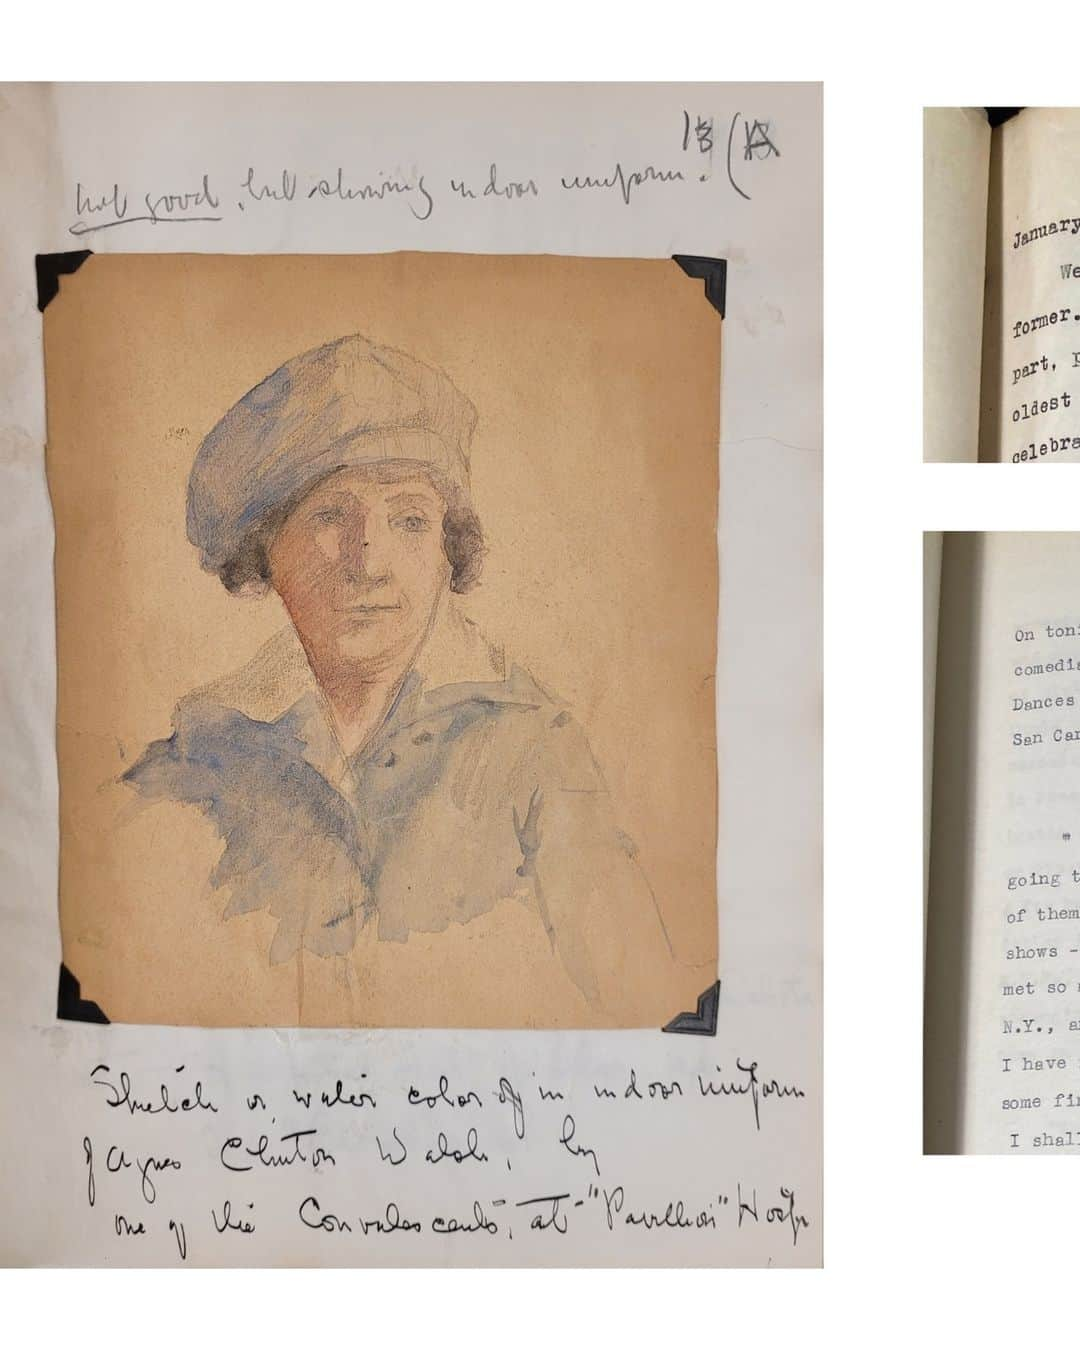 13 (
not good, but showing indoor uniform.
Sketch or water color of in indoor uniform
of Agnes Clinton Walsh, by
one of the Convalescents, at "Pavillion" Hosp
January
We
former.
part, p
oldest
celebra
On toni
comedia
Dances
San Car
"
going t
of them
shows -
met so
N.Y., a
I have
some fin
I shall